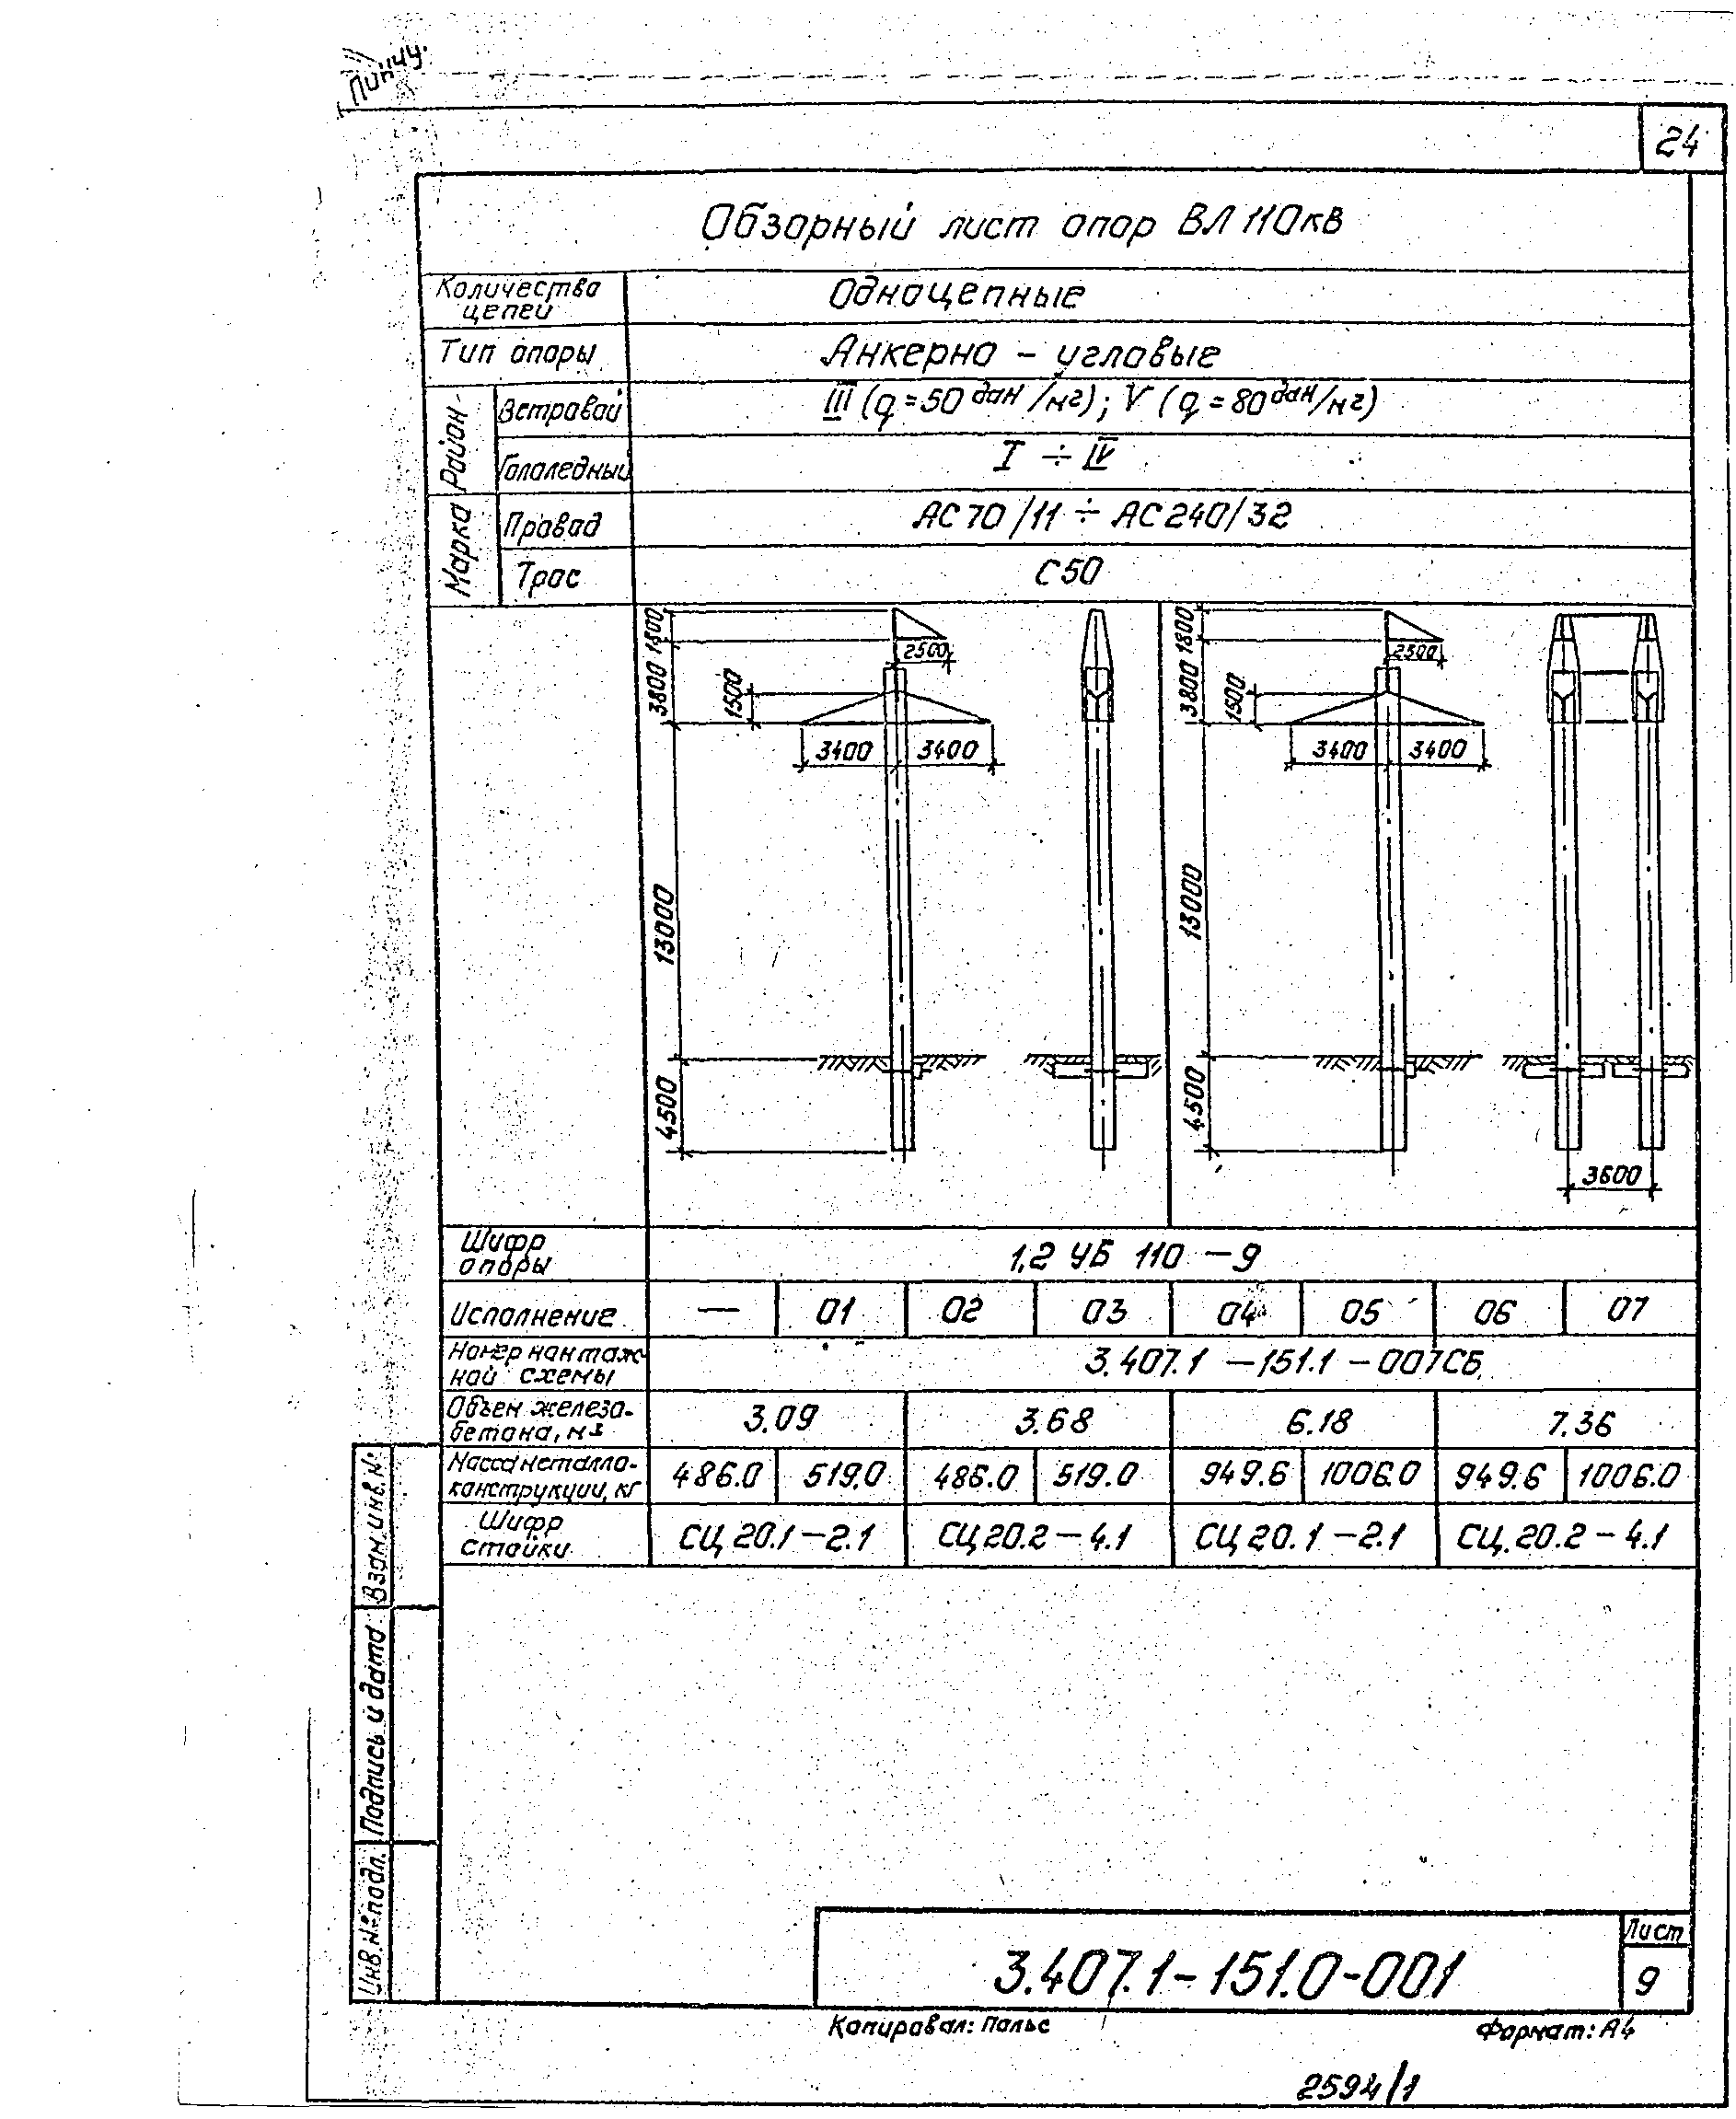 24
Обзорный лист опор ВЛ 110кВ
Количество цепей
Одноцепные
Тип опоры
Анкерно - угловые
Район
Ветровой
III (q = 50 дан/м²); V (q = 80 дан/м²)
Гололедный
I ÷ IV
Марка
Провод
АС 70/11 ÷ АС 240/32
Трос
С 50
1800
3800
1500
2500
3400
3400
13000
4500
1800
3800
1500
2500
3400
3400
13000
4500
3600
Шифр опоры
1,2 УБ 110 - 9
Исполнение
— 01 02 03 04 05 06 07
Номер монтажной схемы
3.407.1 - 151.1 - 007СБ
Объем железобетона, м³
3.09 3.68 6.18 7.36
Масса металлоконструкции, кг
486.0 519.0 486.0 519.0 949.6 1006.0 949.6 1006.0
Шифр стойки
СЦ 20.1 - 2.1 СЦ 20.2 - 4.1 СЦ 20.1 - 2.1 СЦ. 20.2 - 4.1
Взам. инв. №
Подпись и дата
Инв. № подл.
3.407.1 - 151.0 - 001
Лист
9
Копировал: Пальс
Формат: А4
2594/1